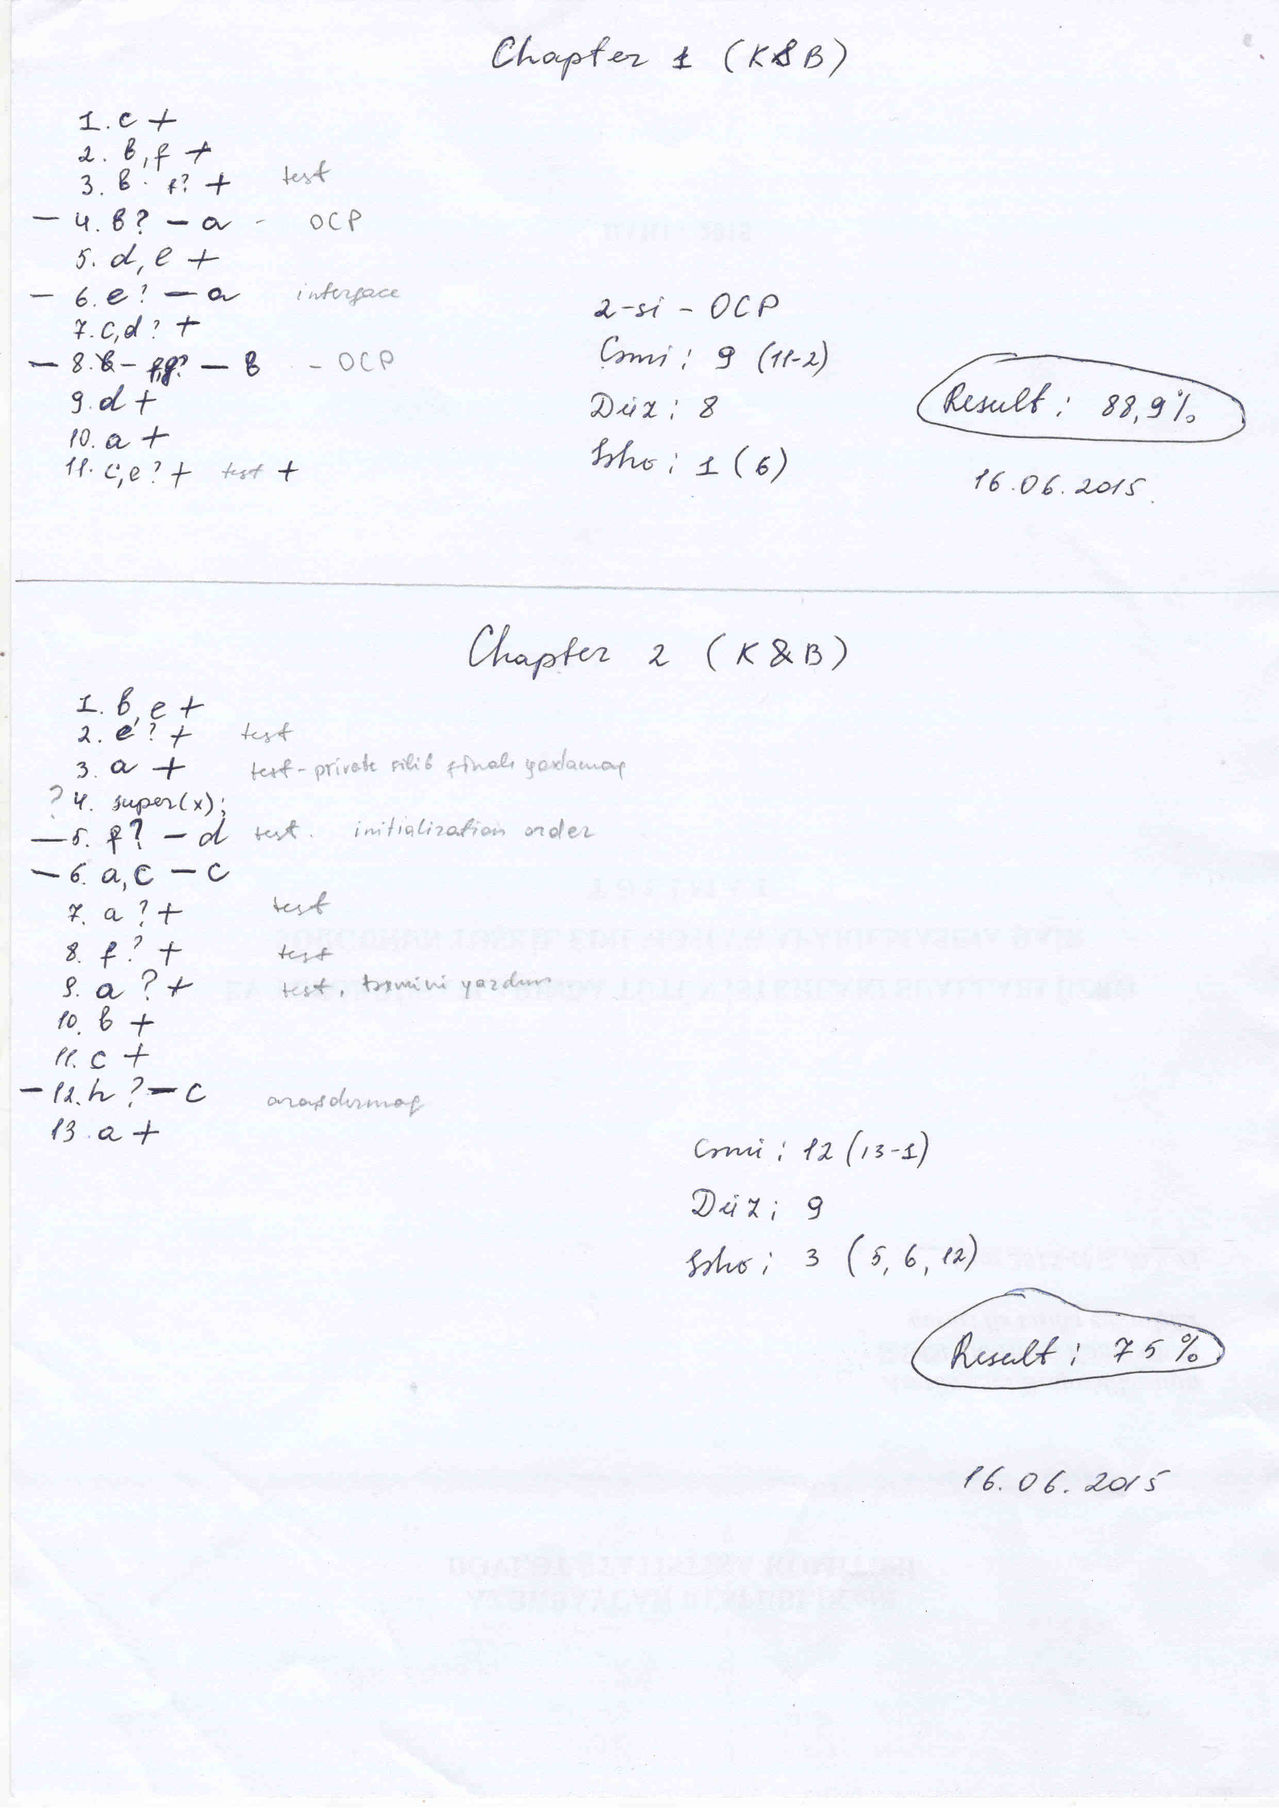 Chapter 1 (K&B)
1. c +
2. b, f +
3. b. f? + test
— 4. b? — a - OCP
5. d, e +
— 6. e? — a interface
7. c,d? + 
— 8. — b - OCP
9. d +
10. a +
11. c,e? + test +
2-si - OCP
Cəmi : 9 (11-2)
Düz : 8
Səhv : 1 (6)
Result : 88,9%
16.06.2015.
Chapter 2 (K&B)
1. b, e +
2. e? + test
3. a + test - private silib finalı yoxlamaq
? 4. super(x);
— 5. f? — d test. initialization order
— 6. a, c — c
7. a? + test
8. f? + test
9. a? + test, təxmini yazdım
10. b +
11. c +
— 12. h? — c araşdırmaq
13. a +
Cəmi : 12 (13-1)
Düz : 9
Səhv : 3 (5, 6, 12)
Result : 75%
16.06.2015